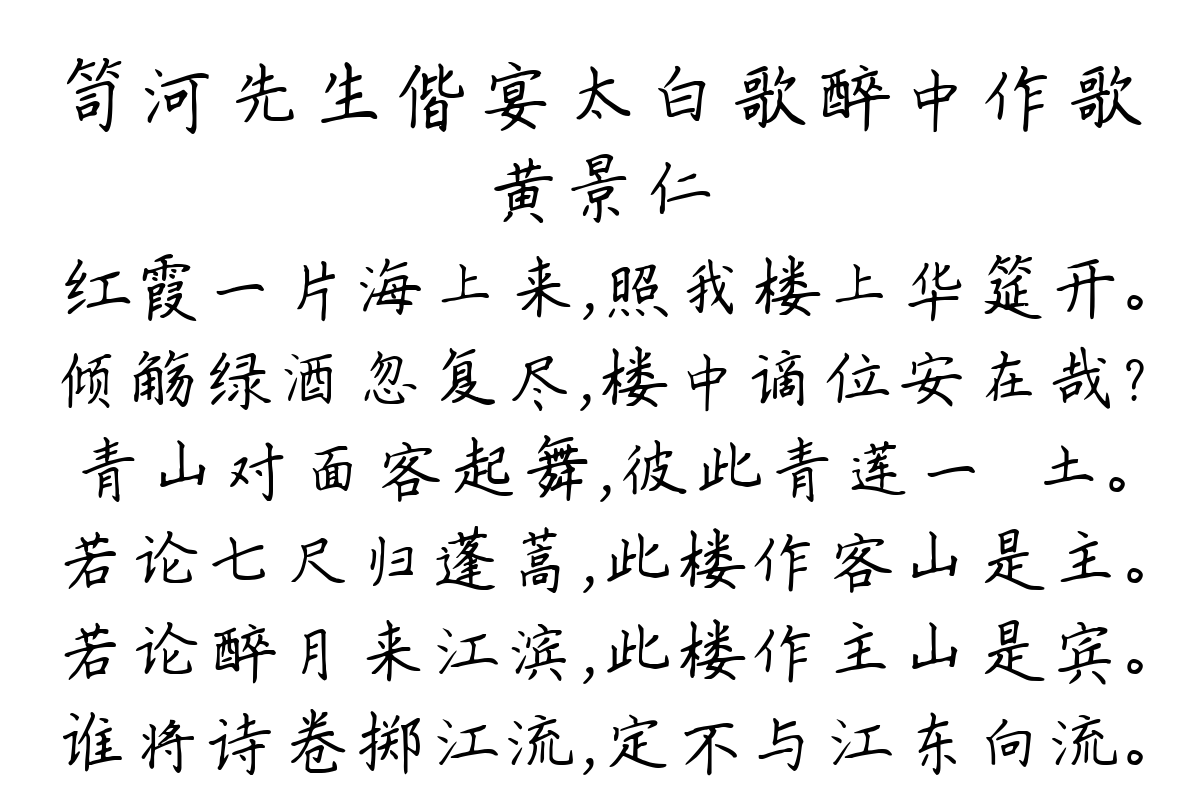 笥河先生偕宴太白歌醉中作歌
黄景仁
红霞一片海上来,照我楼上华筵开。
倾觞绿酒忽复尽,楼中谪位安在哉?
青山对面客起舞,彼此青莲一 土。
若论七尺归蓬蒿,此楼作客山是主。
若论醉月来江滨,此楼作主山是宾。
谁将诗卷掷江流,定不与江东向流。